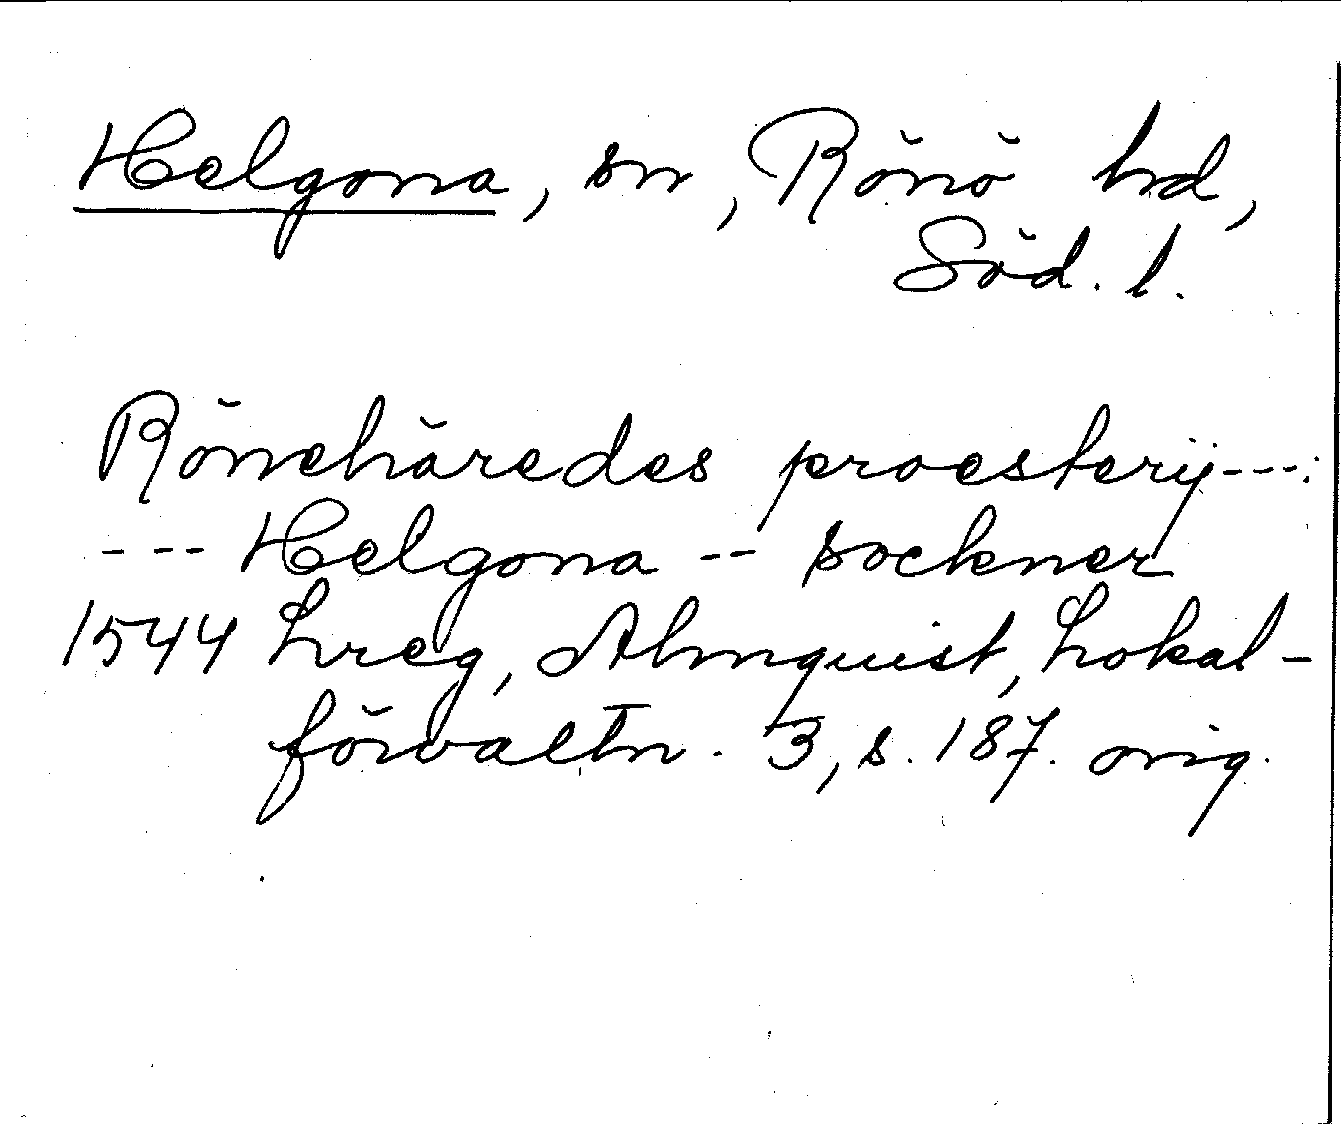 Helgona, sn, Rönö hd,
Söd. l.
Rönehäredes proesterij---:
--- Helgona -- sockner
1544 Lreg, Almquist, Lokal-
förvaltn. 3, s. 187. orig.